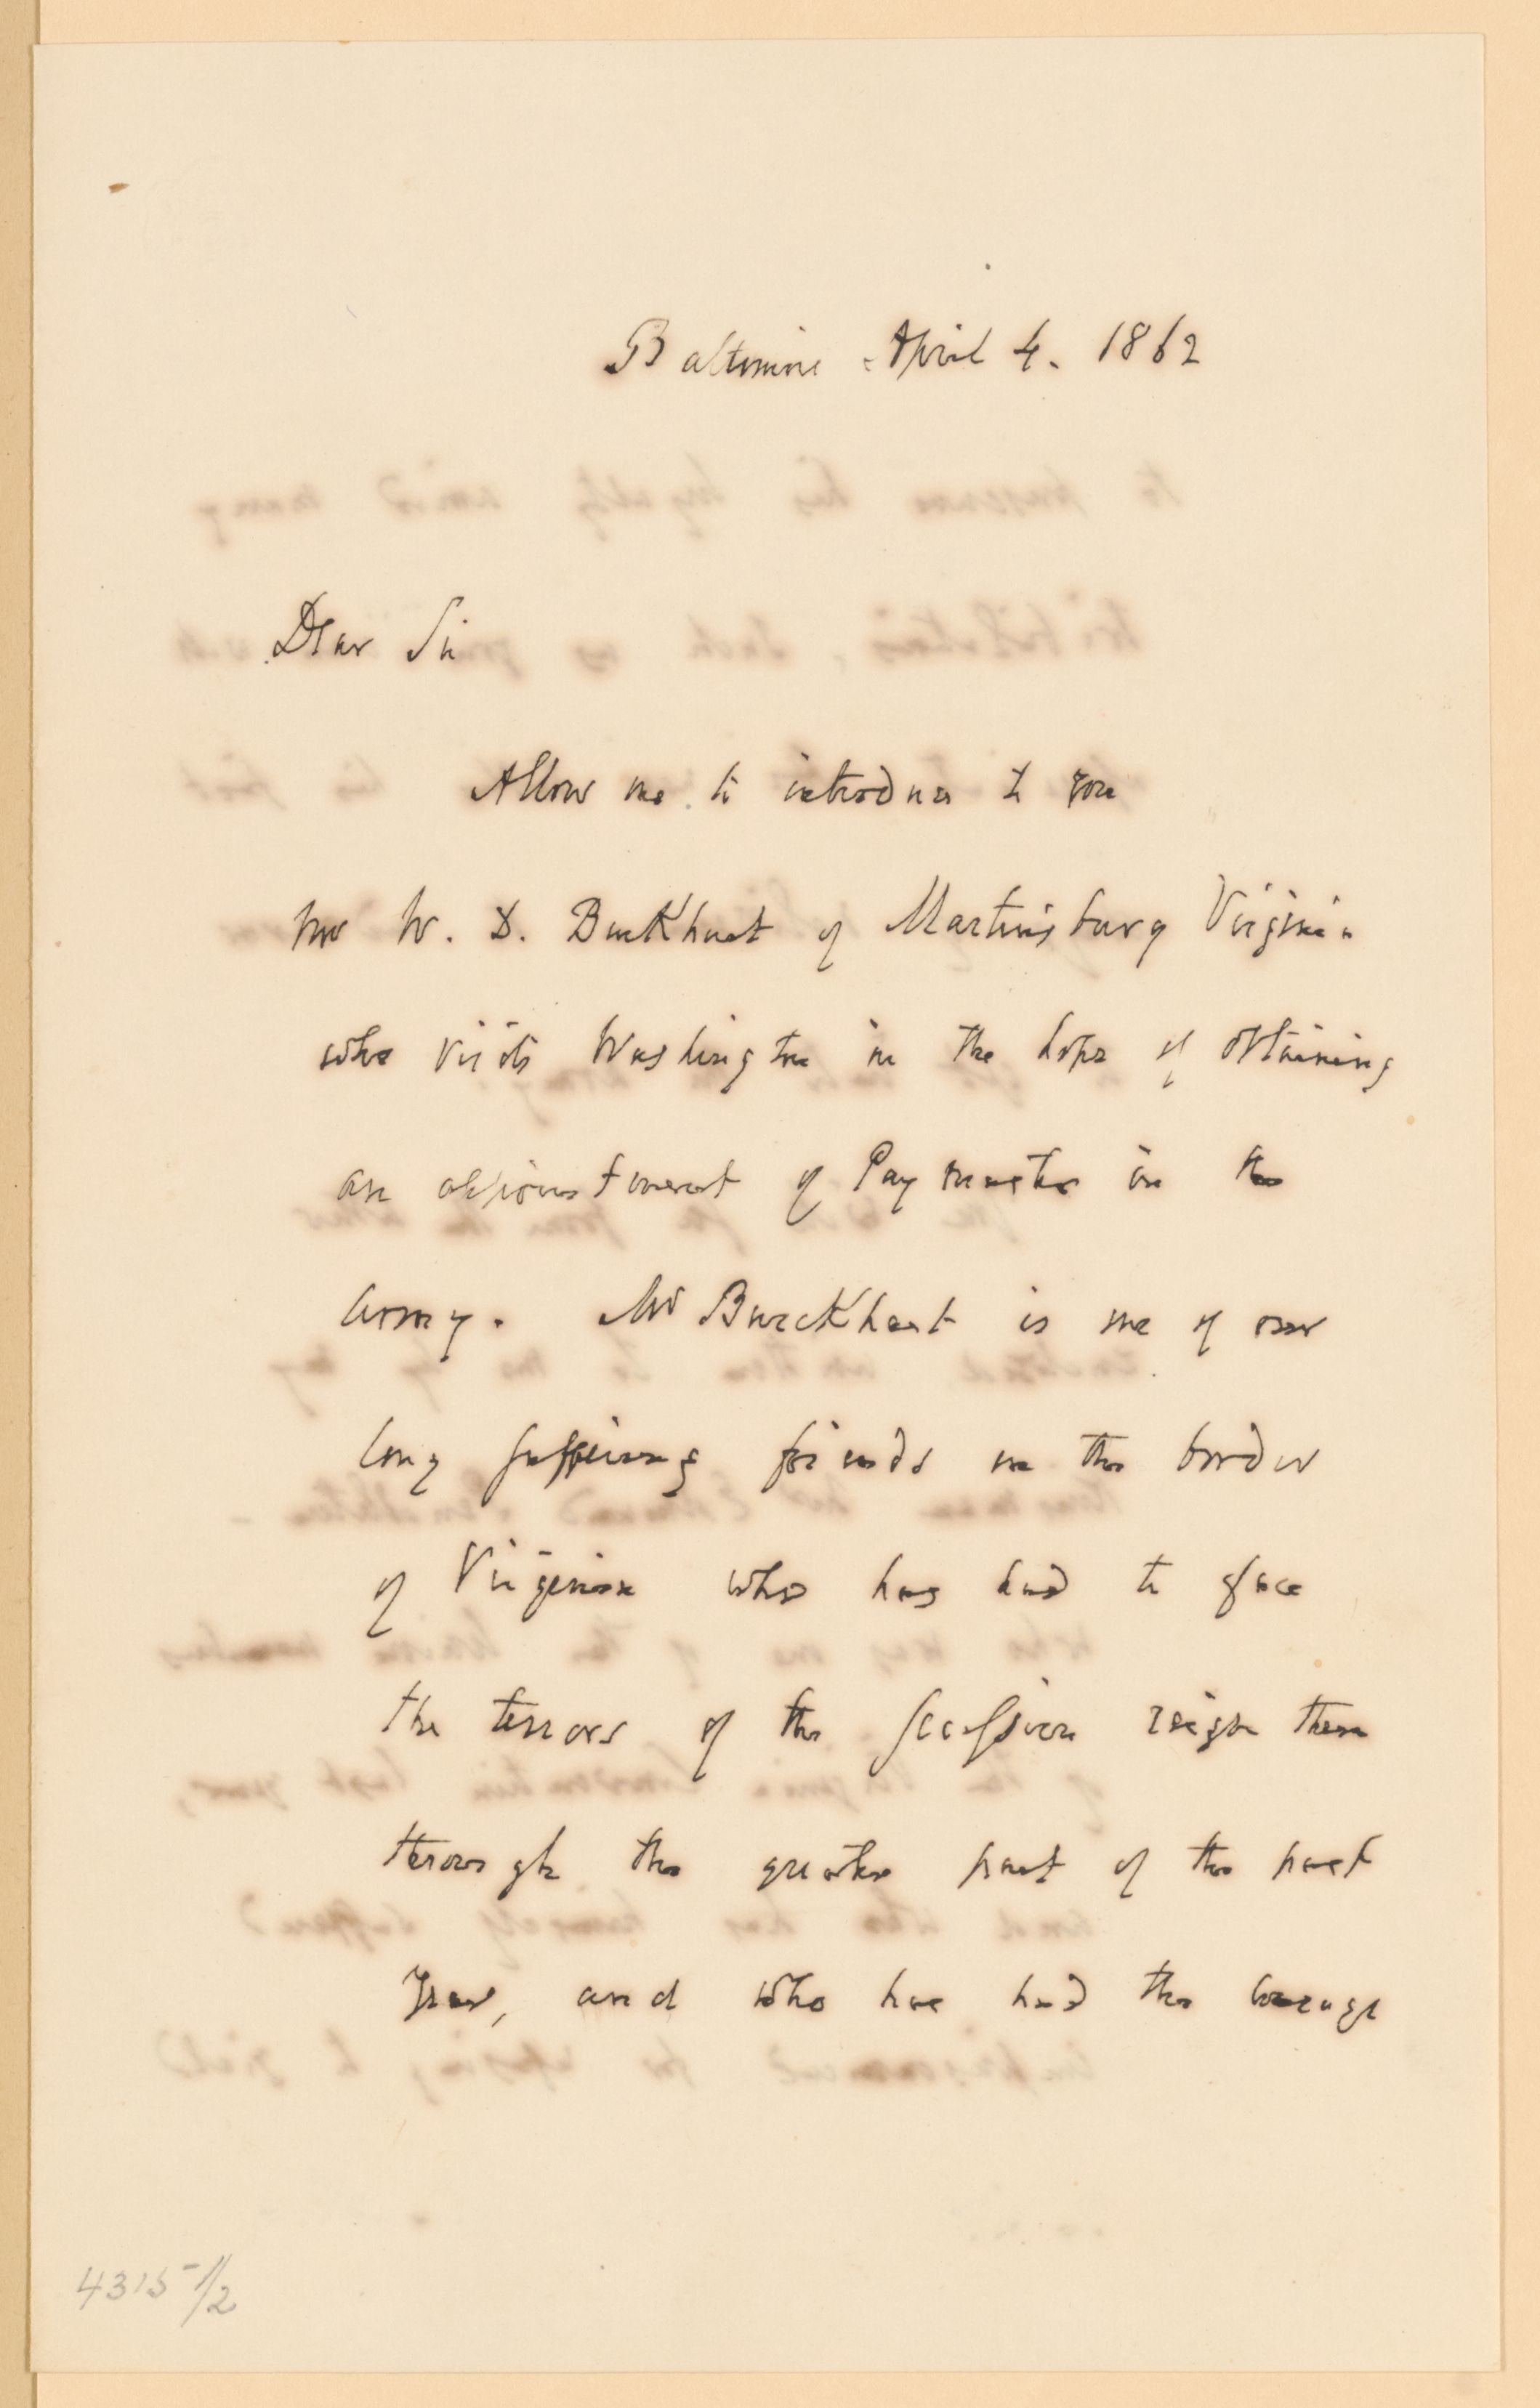 Baltimore April 4. 1862
Dear Sir
Allow me to introduce to you
Mr W. D. Burkhart of Martinsburg Virginia
who visits Washington in the hope of obtaining
an appointment of Paymaster in the
Army. Mr Burckhart is one of our
long suffering friends on the border
of Virginia who has had to face
the terrors of the secession reign there
through the greater part of the past
year, and who has had the courage
4315 1/2